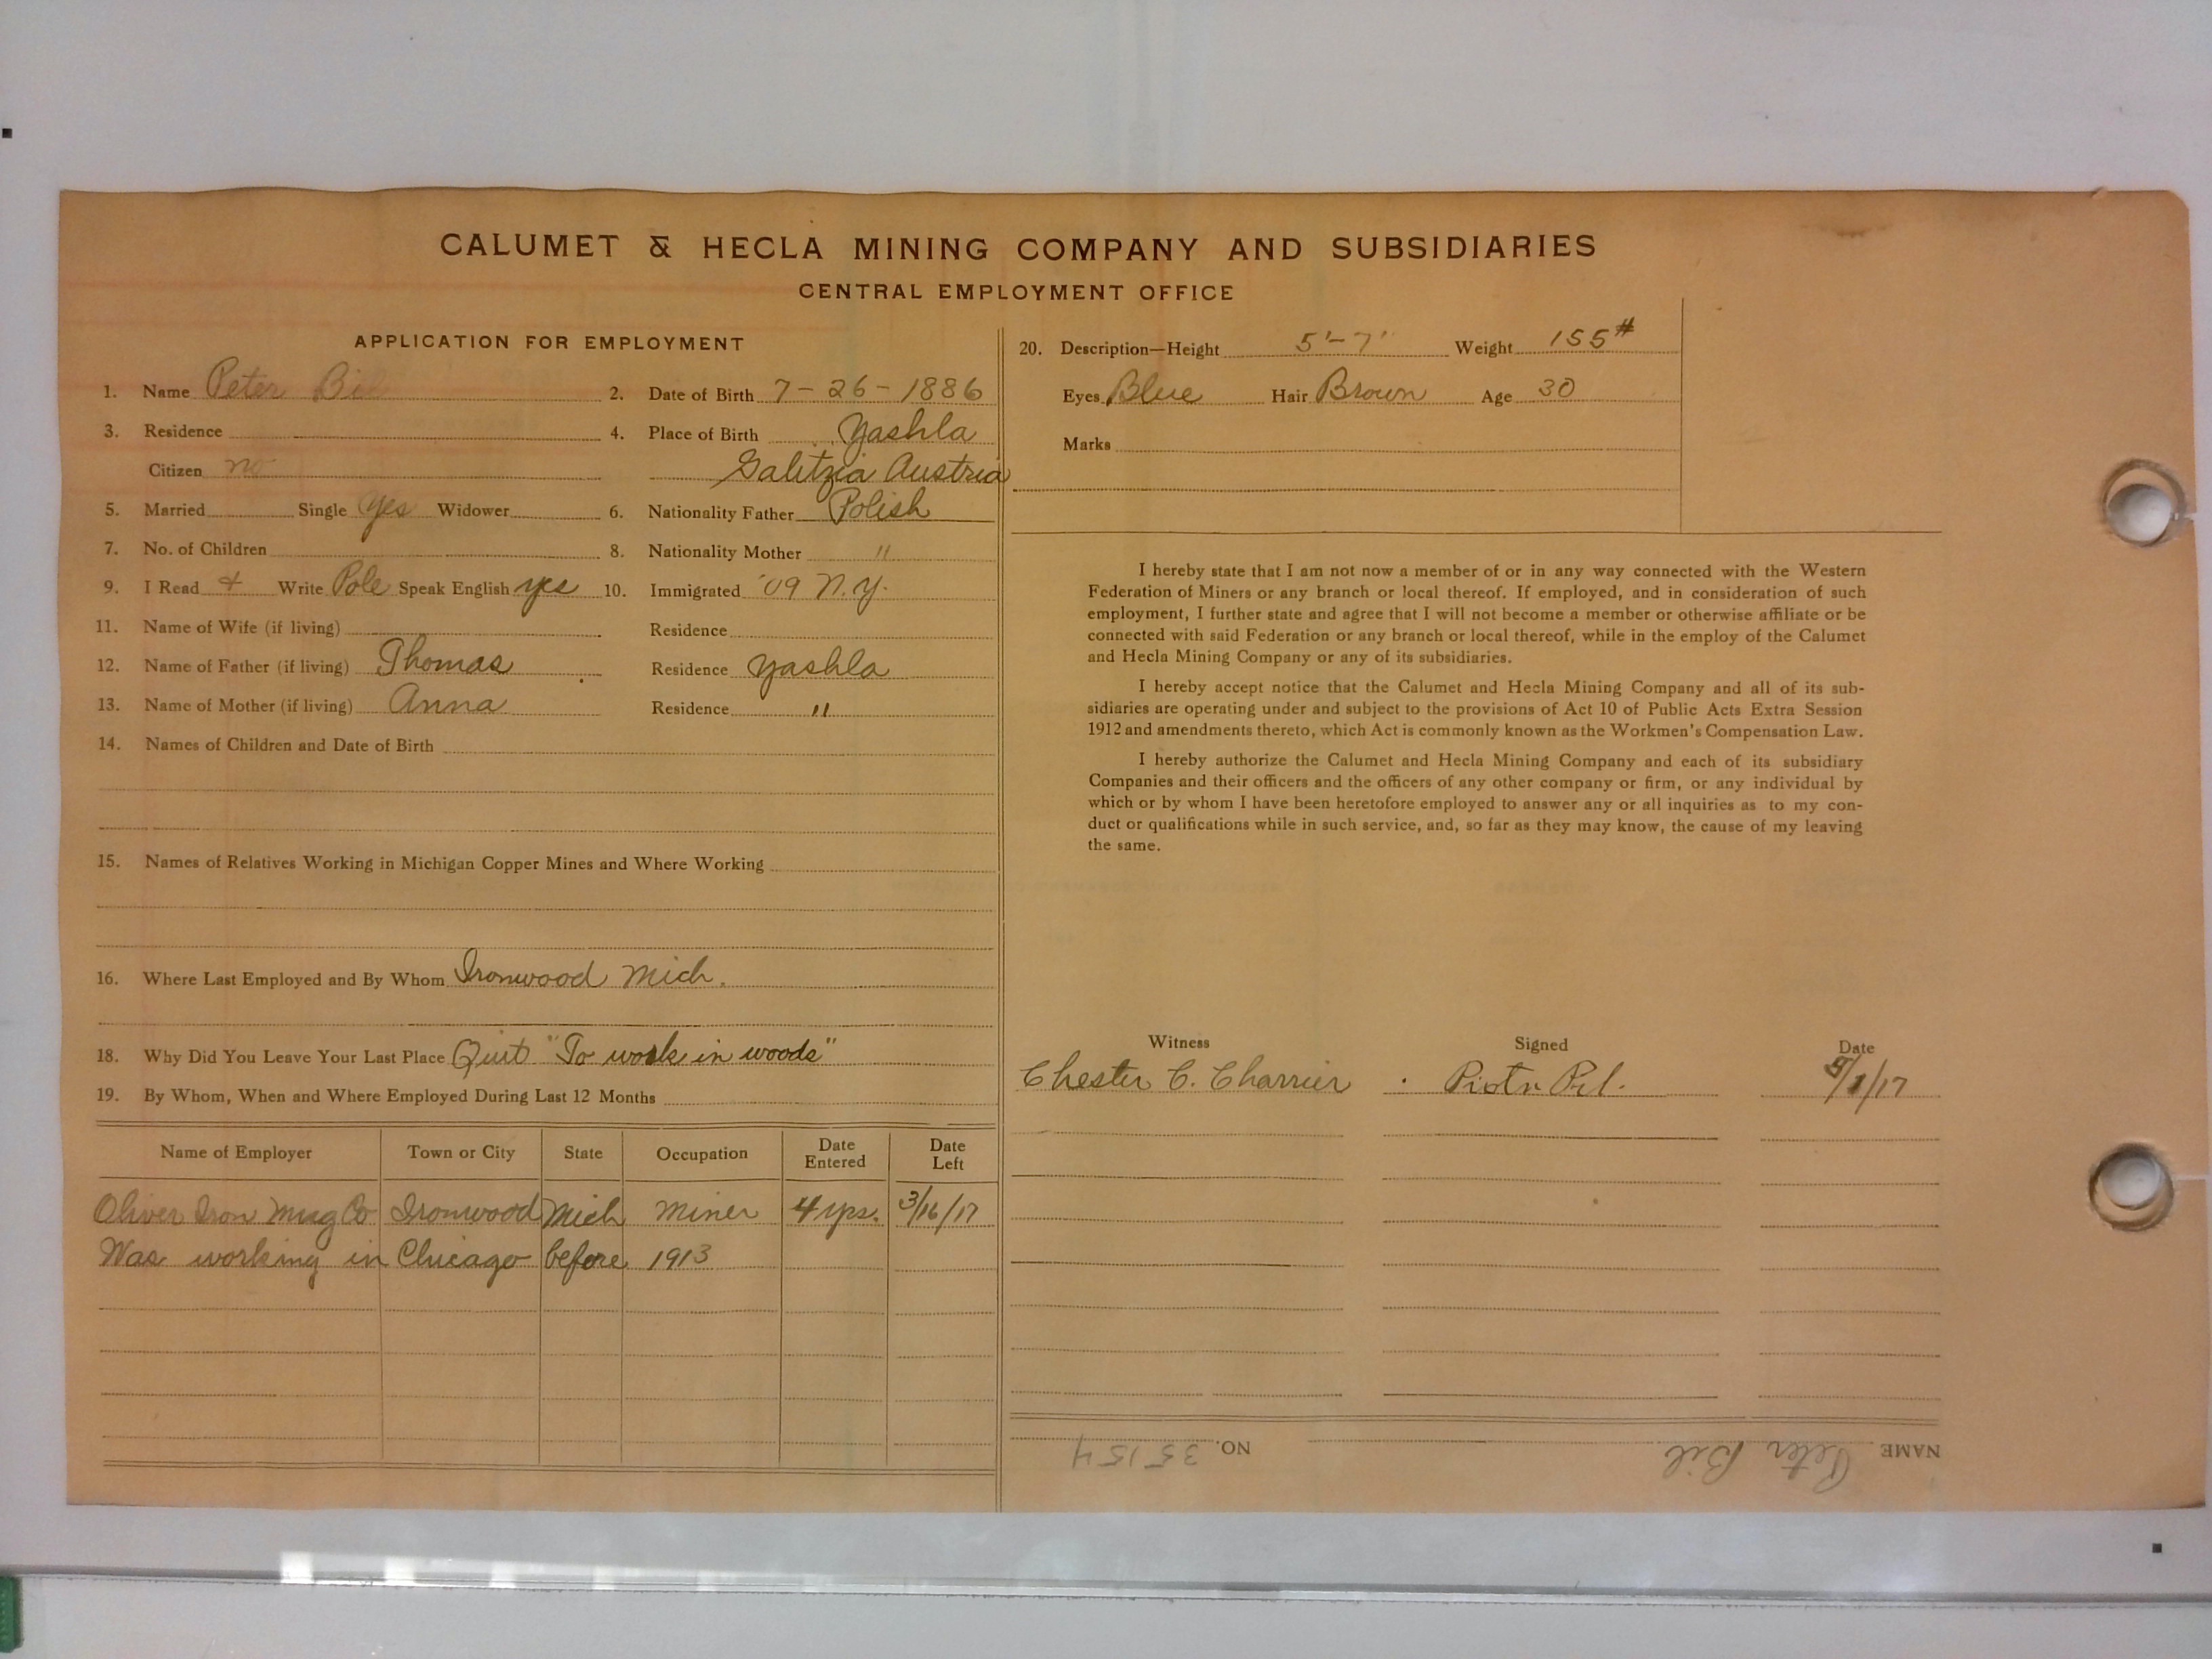 CALUMET & HECLA MINING COMPANY AND SUBSIDIARIES
CENTRAL EMPLOYMENT OFFICE
APPLICATION FOR EMPLOYMENT
1. Name Peter Bil 2. Date of Birth 7-26-1886
3. Residence 4. Place of Birth Yashla
Citizen no Galitzia Austria
5. Married Single Yes Widower 6. Nationality Father Polish
7. No. of Children 8. Nationality Mother "
9. I Read + Write Pole Speak English yes 10. Immigrated '09 N.Y.
11. Name of Wife (if living) Residence
12. Name of Father (if living) Thomas Residence Yashla
13. Name of Mother (if living) Anna Residence "
14. Names of Children and Date of Birth
15. Names of Relatives Working in Michigan Copper Mines and Where Working
16. Where Last Employed and By Whom Ironwood Mich.
18. Why Did You Leave Your Last Place Quit "To work in woods"
19. By Whom, When and Where Employed During Last 12 Months
Name of Employer Town or City State Occupation Date Entered Date Left
Oliver Iron Mng Co Ironwood Mich Miner 4 yrs. 3/16/17
Was working in Chicago before 1913
20. Description—Height 5'-7" Weight 155#
Eyes Blue Hair Brown Age 30
Marks
I hereby state that I am not now a member of or in any way connected with the Western
Federation of Miners or any branch or local thereof. If employed, and in consideration of such
employment, I further state and agree that I will not become a member or otherwise affiliate or be
connected with said Federation or any branch or local thereof, while in the employ of the Calumet
and Hecla Mining Company or any of its subsidiaries.
I hereby accept notice that the Calumet and Hecla Mining Company and all of its sub-
sidiaries are operating under and subject to the provisions of Act 10 of Public Acts Extra Session
1912 and amendments thereto, which Act is commonly known as the Workmen's Compensation Law.
I hereby authorize the Calumet and Hecla Mining Company and each of its subsidiary
Companies and their officers and the officers of any other company or firm, or any individual by
which or by whom I have been heretofore employed to answer any or all inquiries as to my con-
duct or qualifications while in such service, and, so far as they may know, the cause of my leaving
the same.
Witness Signed Date
Chester C. Charrier Piotr Pil. /1/17
NAME Peter Bil NO. 35154